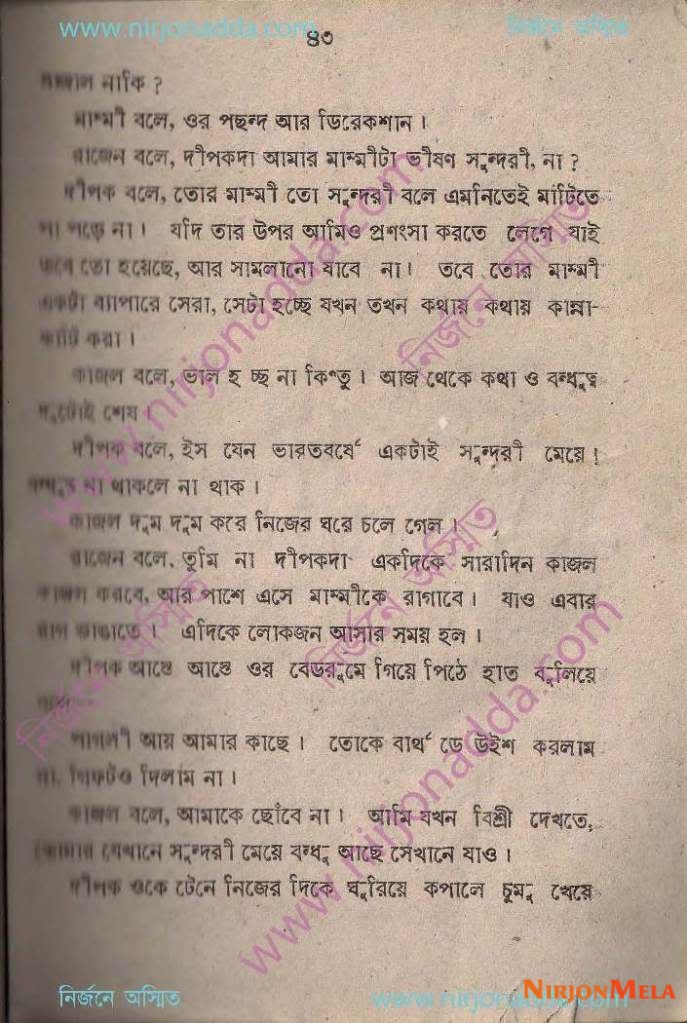 www.nirjonadda.com নির্জনে অস্মিত
৪৩
নাকি ?
মাম্মী বলে, ওর পছন্দ আর ডিরেকশান ।
রাজেন বলে, দীপকদা আমার মাম্মীটা ভীষণ সুন্দরী, না ?
দীপক বলে, তোর মাম্মী তো সুন্দরী বলে এমনিতেই মাটিতে
পা পড়ে না । যদি তার উপর আমিও প্রশংসা করতে লেগে যাই
তবে তো হয়েছে, আর সামলানো যাবে না । তবে তোর মাম্মী
একটা ব্যাপারে সেরা, সেটা হচ্ছে যখন তখন কথায় কথায় কান্না-
কাটি করা ।
কাজল বলে, ভাল হ চ্ছ না কিন্তু । আজ থেকে কথা ও বন্ধুত্ব
দুটোই শেষ ।
দীপক বলে, ইস যেন ভারতবর্ষে একটাই সুন্দরী মেয়ে !
বন্ধুত্ব না থাকলে না থাক ।
কাজল দুম দুম করে নিজের ঘরে চলে গেল ।
রাজেন বলে, তুমি না দীপকদা একদিকে সারাদিন কাজল
কাজল করবে, আর পাশে এসে মাম্মীকে রাগাবে । যাও এবার
রাগ ভাঙাতে । এদিকে লোকজন আসার সময় হল ।
দীপক আস্তে আস্তে ওর বেডরুমে গিয়ে পিঠে হাত বুলিয়ে
পাগলী আয় আমার কাছে । তোকে বার্থ ডে উইশ করলাম
না, গিফটও দিলাম না ।
কাজল বলে, আমাকে ছোঁবে না । আমি যখন বিশ্রী দেখতে,
তোমার যেখানে সুন্দরী মেয়ে বন্ধু আছে সেখানে যাও ।
দীপক ওকে টেনে নিজের দিকে ঘুরিয়ে কপালে চুমু খেয়ে
www.nirjonadda.com
নির্জনে অস্মিত
নির্জনে অস্মিত
নির্জনে অস্মিত
www.nirjonadda.com
নির্জনে অস্মিত www.nirjonadda.com NIRJONMELA